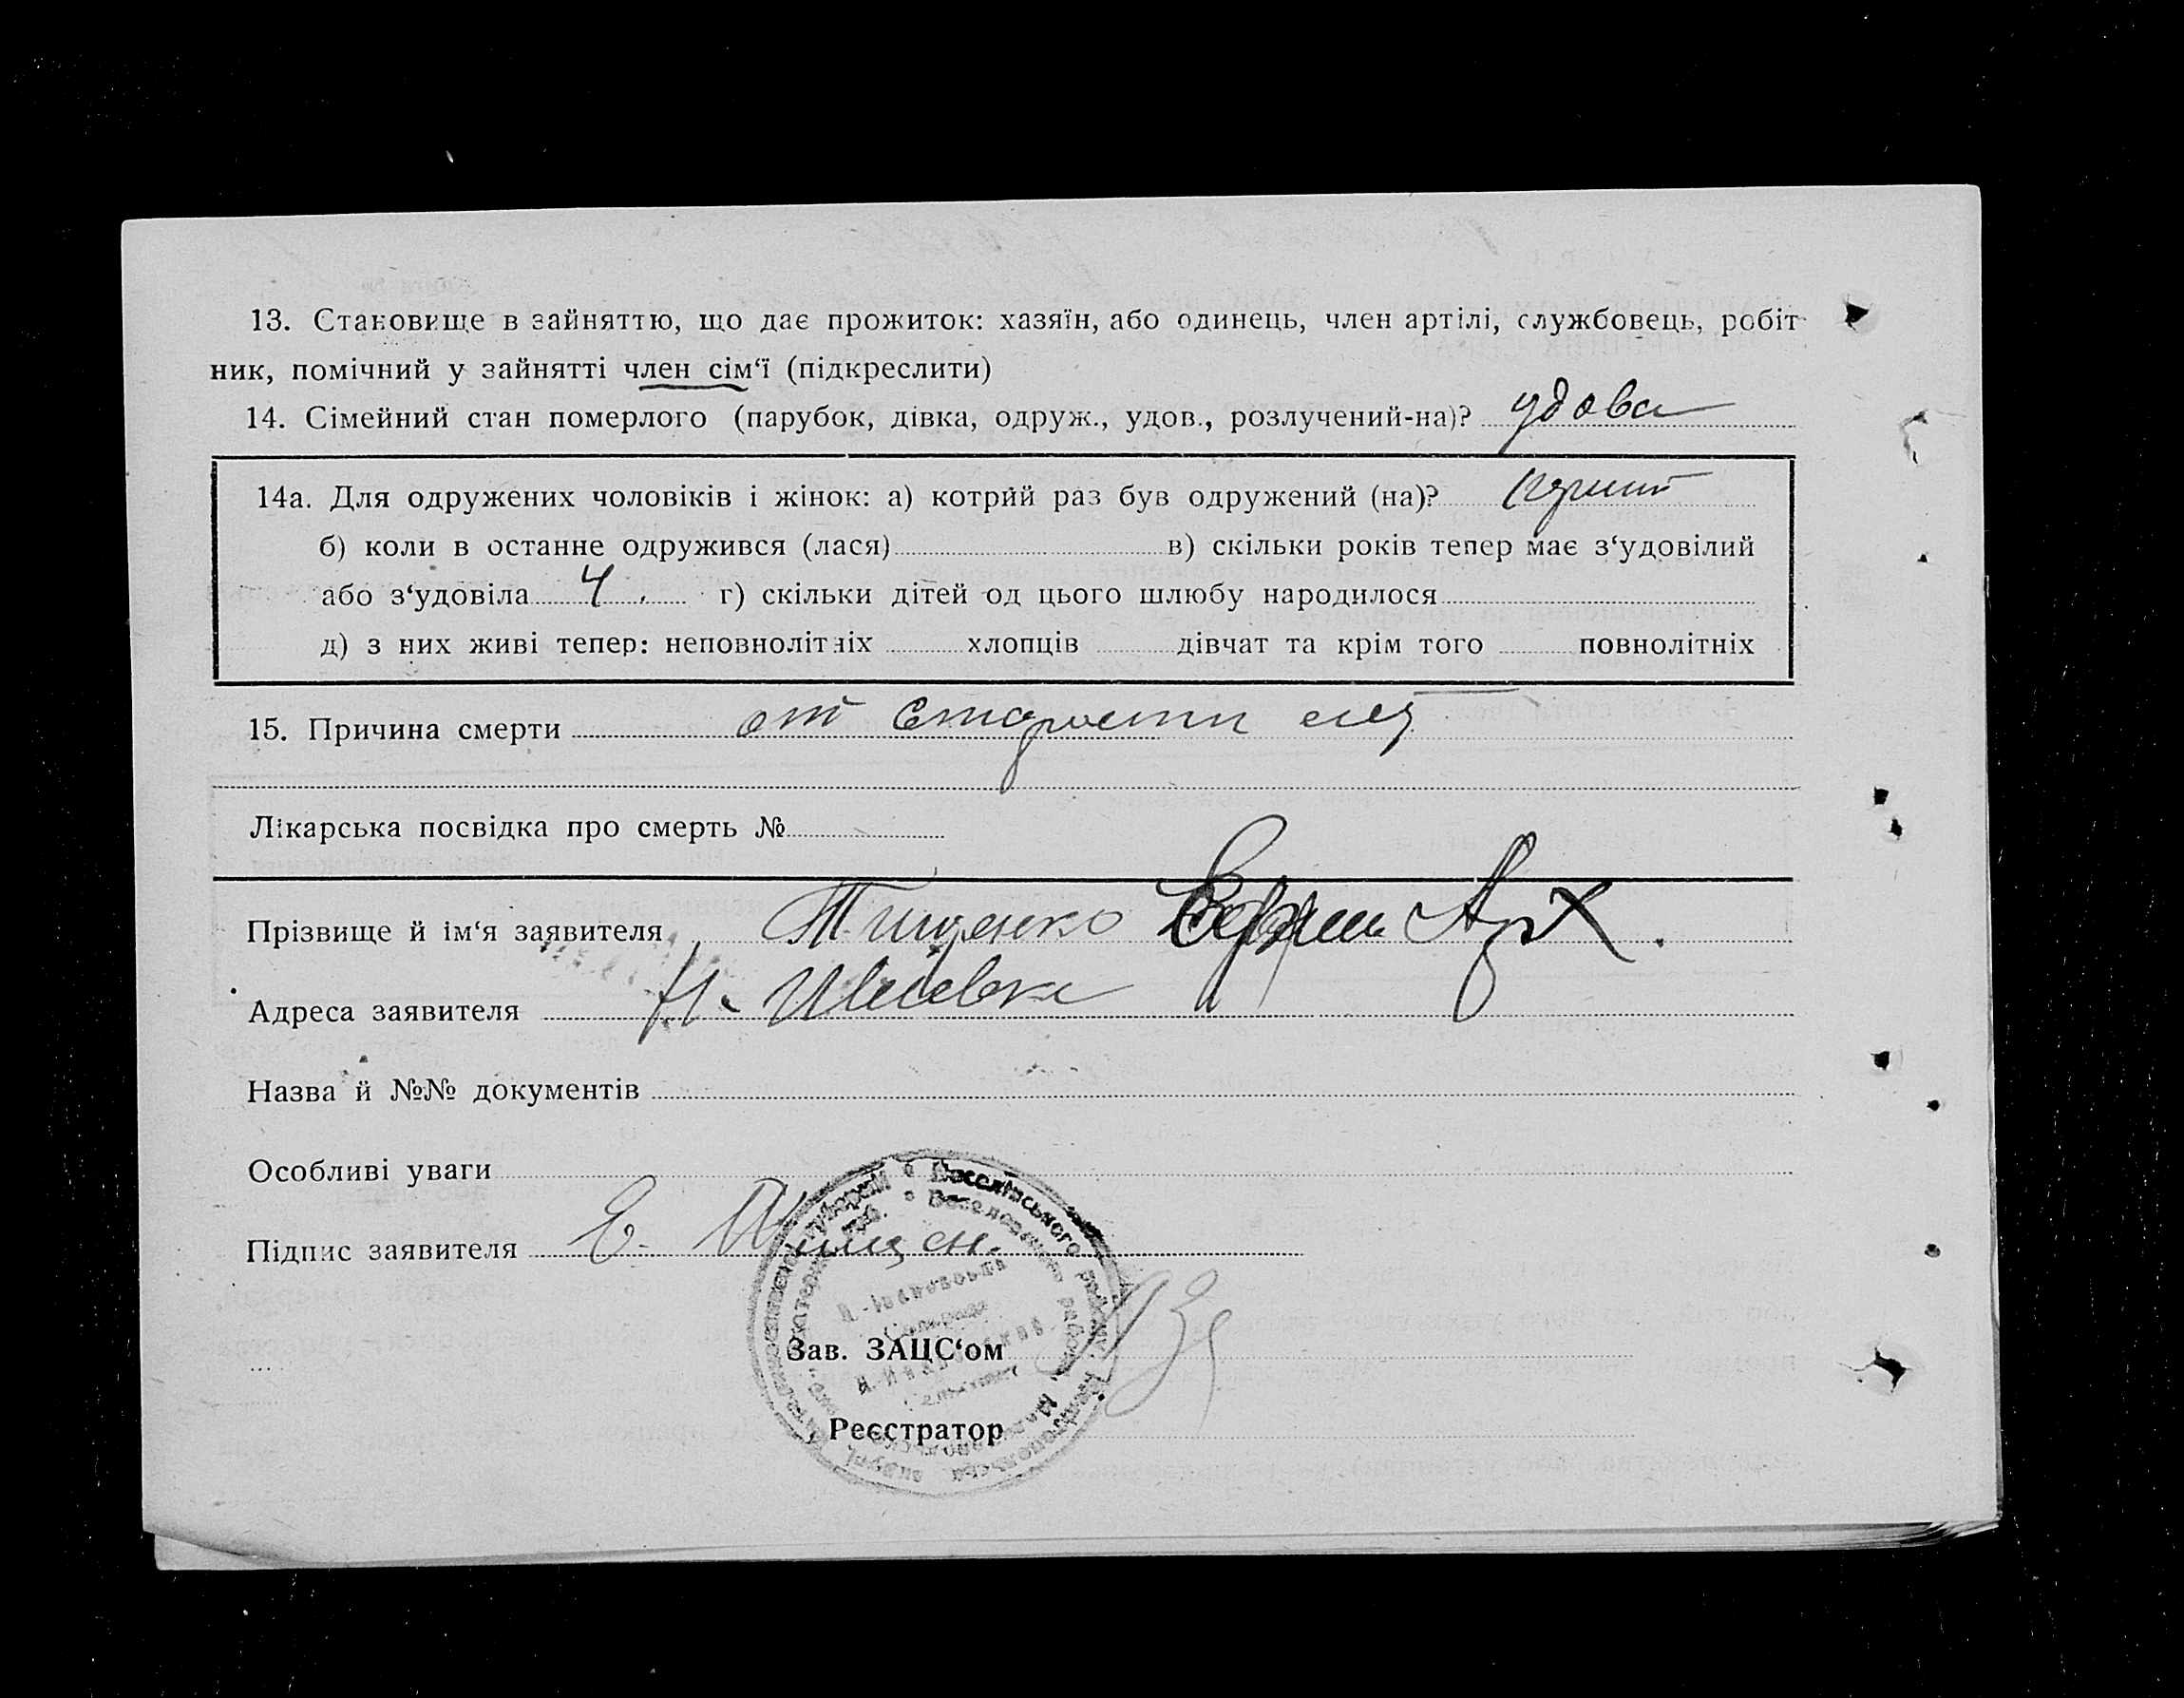 13. Становище в зайняттю, що дає прожиток: хазяїн, або одинець, член артілі, службовець, робіт-
ник, помічний у зайнятті член сім‘ї (підкреслити)
14. Сімейний стан померлого (парубок, дівка, одруж., удов., розлучений-на)? удова
14а. Для одружених чоловіків і жінок: а) котрий раз був одружений (на)?
б) коли в останне одружився (лася) в) скільки років тепер має з‘удовілий
або з‘удовіла 4. г) скільки дітей од цього шлюбу народилося
д) з них живі тепер: неповнолітніх хлопців дівчат та крім того повнолітніх
15. Причина смерти от старости лет
Лікарська посвідка про смерть №
Прізвище й ім‘я заявителя Тищенко Ефрем Арх.
Адреса заявителя Н. Ивановка
Назва й №№ документів
Особливі уваги
Підпис заявителя Е. Тищен.
Зав. ЗАЦС‘ом
Реєстратор